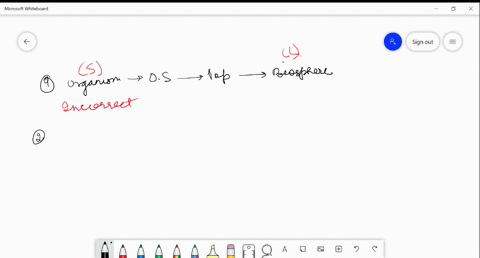 Microsoft Whiteboard
Sign out
(S) (L)
Organism → O.S → Pop → Biosphere
Incorrect
②
A